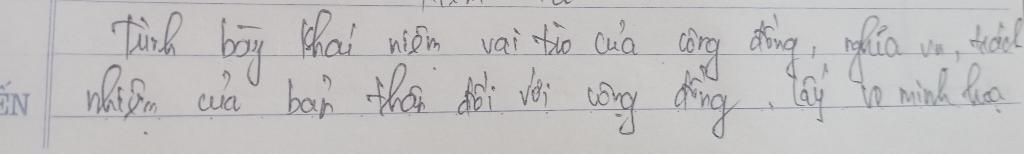 Trình bày khái niệm vai trò của cộng đồng, nghĩa vụ, trách
ẾN nhiệm của bản thân đối với cộng đồng. lấy VD minh họa